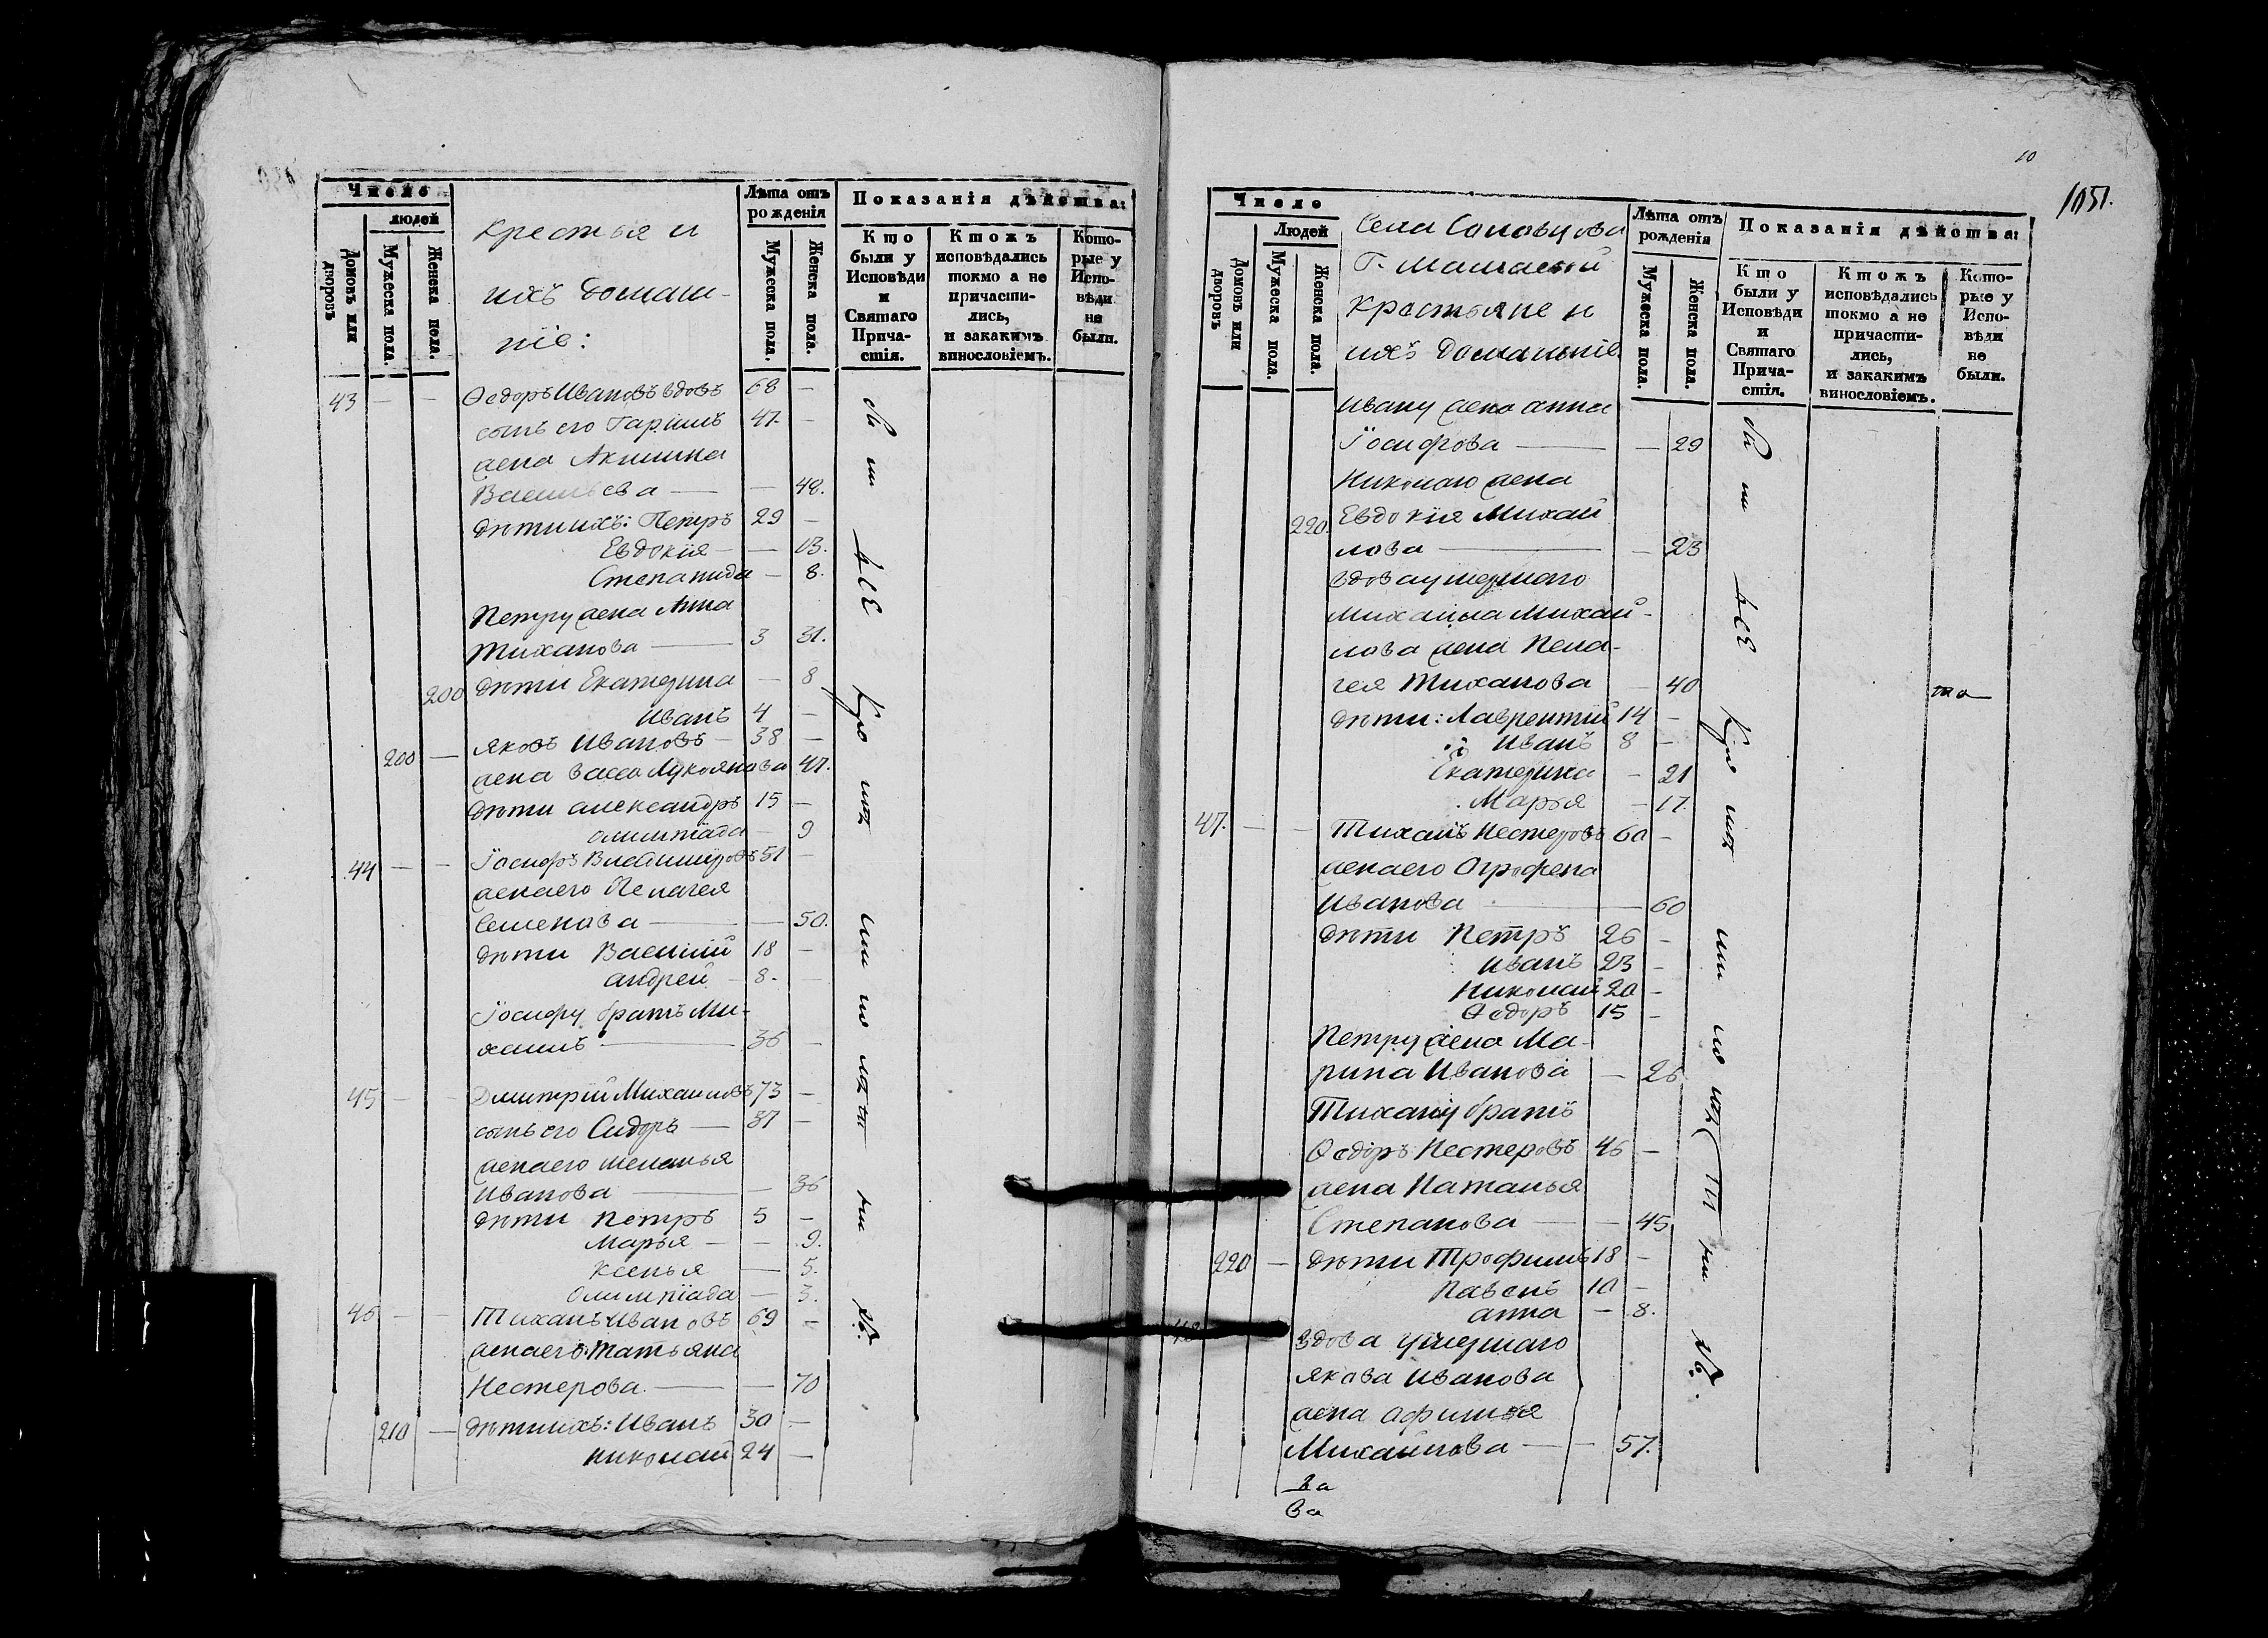 Число
людей
Домовъ или дворовъ
Мужеска пола.
Женска пола.
Крестья и
ихъ домаш-
ніе:
Лѣта отъ рожденія
Мужеска пола.
Женска пола.
Показанія дѣйства:
Кто были у Исповѣди и Святаго Прича-стія.
Ктожъ исповѣдались токмо а не причасти-лись, и закакимъ винословіемъ.
Кото-рые у Испо-вѣди не были.
43 — — Ѳедоръ Ивановъ вдовъ 68 —
сынъ его 47. —
жена Акилина
Васильева — — 48.
дѣти ихъ: Петръ 29 —
Евдокія — — 13.
Степанида — 8.
Петру жена Анна
Тиханова — 3 31.
200 дѣти Екатерина — 8
Иванъ 4 —
200 — Яковъ Ивановъ — 38 —
жена Васса Лукоянова 47.
дѣти Александръ 15 —
Олимпіада — 9
44 — — Іосифъ Владиміровъ 51 —
жена его Пелагея
Семенова — — 50.
дѣти Василій 18 —
Андрей — 8. —
Іосифу братъ Ми-
хаилъ — 36 —
45 — — Дмитрій Михаиловъ 73 —
сынъ его Сидоръ — 37 —
жена его Меланья
Иванова — — 36
дѣти Петръ 5 —
Марья — — 9.
Ксенья — 5.
Олимпіада — 3.
46 — — Тиханъ Ивановъ 69 —
жена его: Татьяна
Нестерова. — — 70
210 — дѣти ихъ: Иванъ 30 —
Николай 24 —
10
1051.
Число
Людей
Домовъ или дворовъ
Мужеска пола.
Женска пола.
Села
Г.
крестьяне и
ихъ домашніе
Лѣта отъ рожденія
Мужеска пола.
Женска пола.
Показанія дѣйства:
Кто были у Исповѣди и Святаго Прича-стія.
Ктожъ исповѣдались токмо а не причасти-лись, и закакимъ винословіемъ.
Кото-рые у Испо-вѣди не были.
Ивану жена Анна
Іосифова — — 29
Николаю жена
220. Евдокія Михай
лова — — 23
вдова умершаго
Михаила Михай-
лова жена Пела-
гея Тиханова — 40
дѣти: Лаврентій 14 —
Иванъ 8 —
Екатерина — 21
Марья — 17.
47. — — Тиханъ Нестеровъ 60 —
жена его Огрофена
Иванова — 60
дѣти Петръ 26 —
Иванъ 23 —
Николай 20 —
Ѳедоръ 15 —
Петру жена Ма-
рина Иванова — 26
Тихану братъ
Ѳедоръ Нестеровъ 46 —
жена Наталья
Степанова — — 45
220 — дѣти Трофимъ 18 —
Павелъ 10 —
Анна — 8.
48 вдова умершаго
Якова Иванова
жена Афимья
Михайлова — — 57.